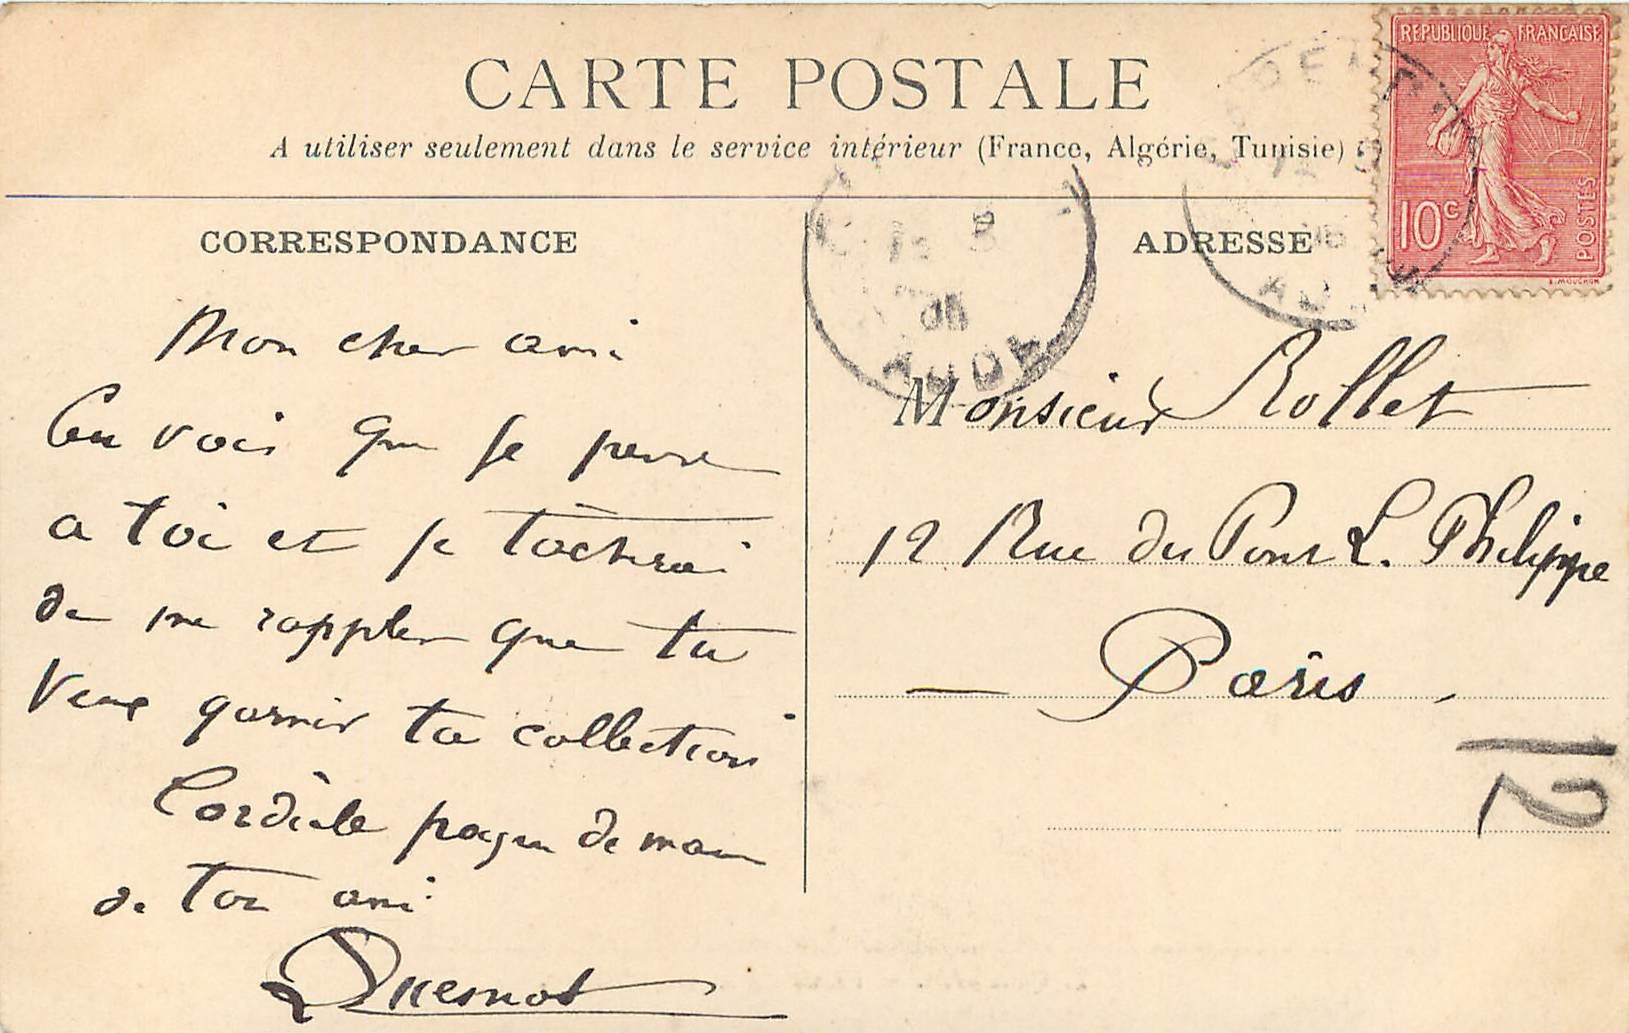 CARTE POSTALE
A utiliser seulement dans le service intérieur (France, Algérie, Tunisie)
RÉPUBLIQUE FRANÇAISE
10c
POSTES
E. MOUCHON
CORRESPONDANCE
Mon cher ami
tu vois que je pense
a toi et je tâcherai
de me rappler que tu
veux garnir ta collection
Cordiale pogne de main
de ton ami
Quesnot
ADRESSE
AUDE
06
Monsieur Rollet
12 Rue du Pont L. Philippe
Paris
12